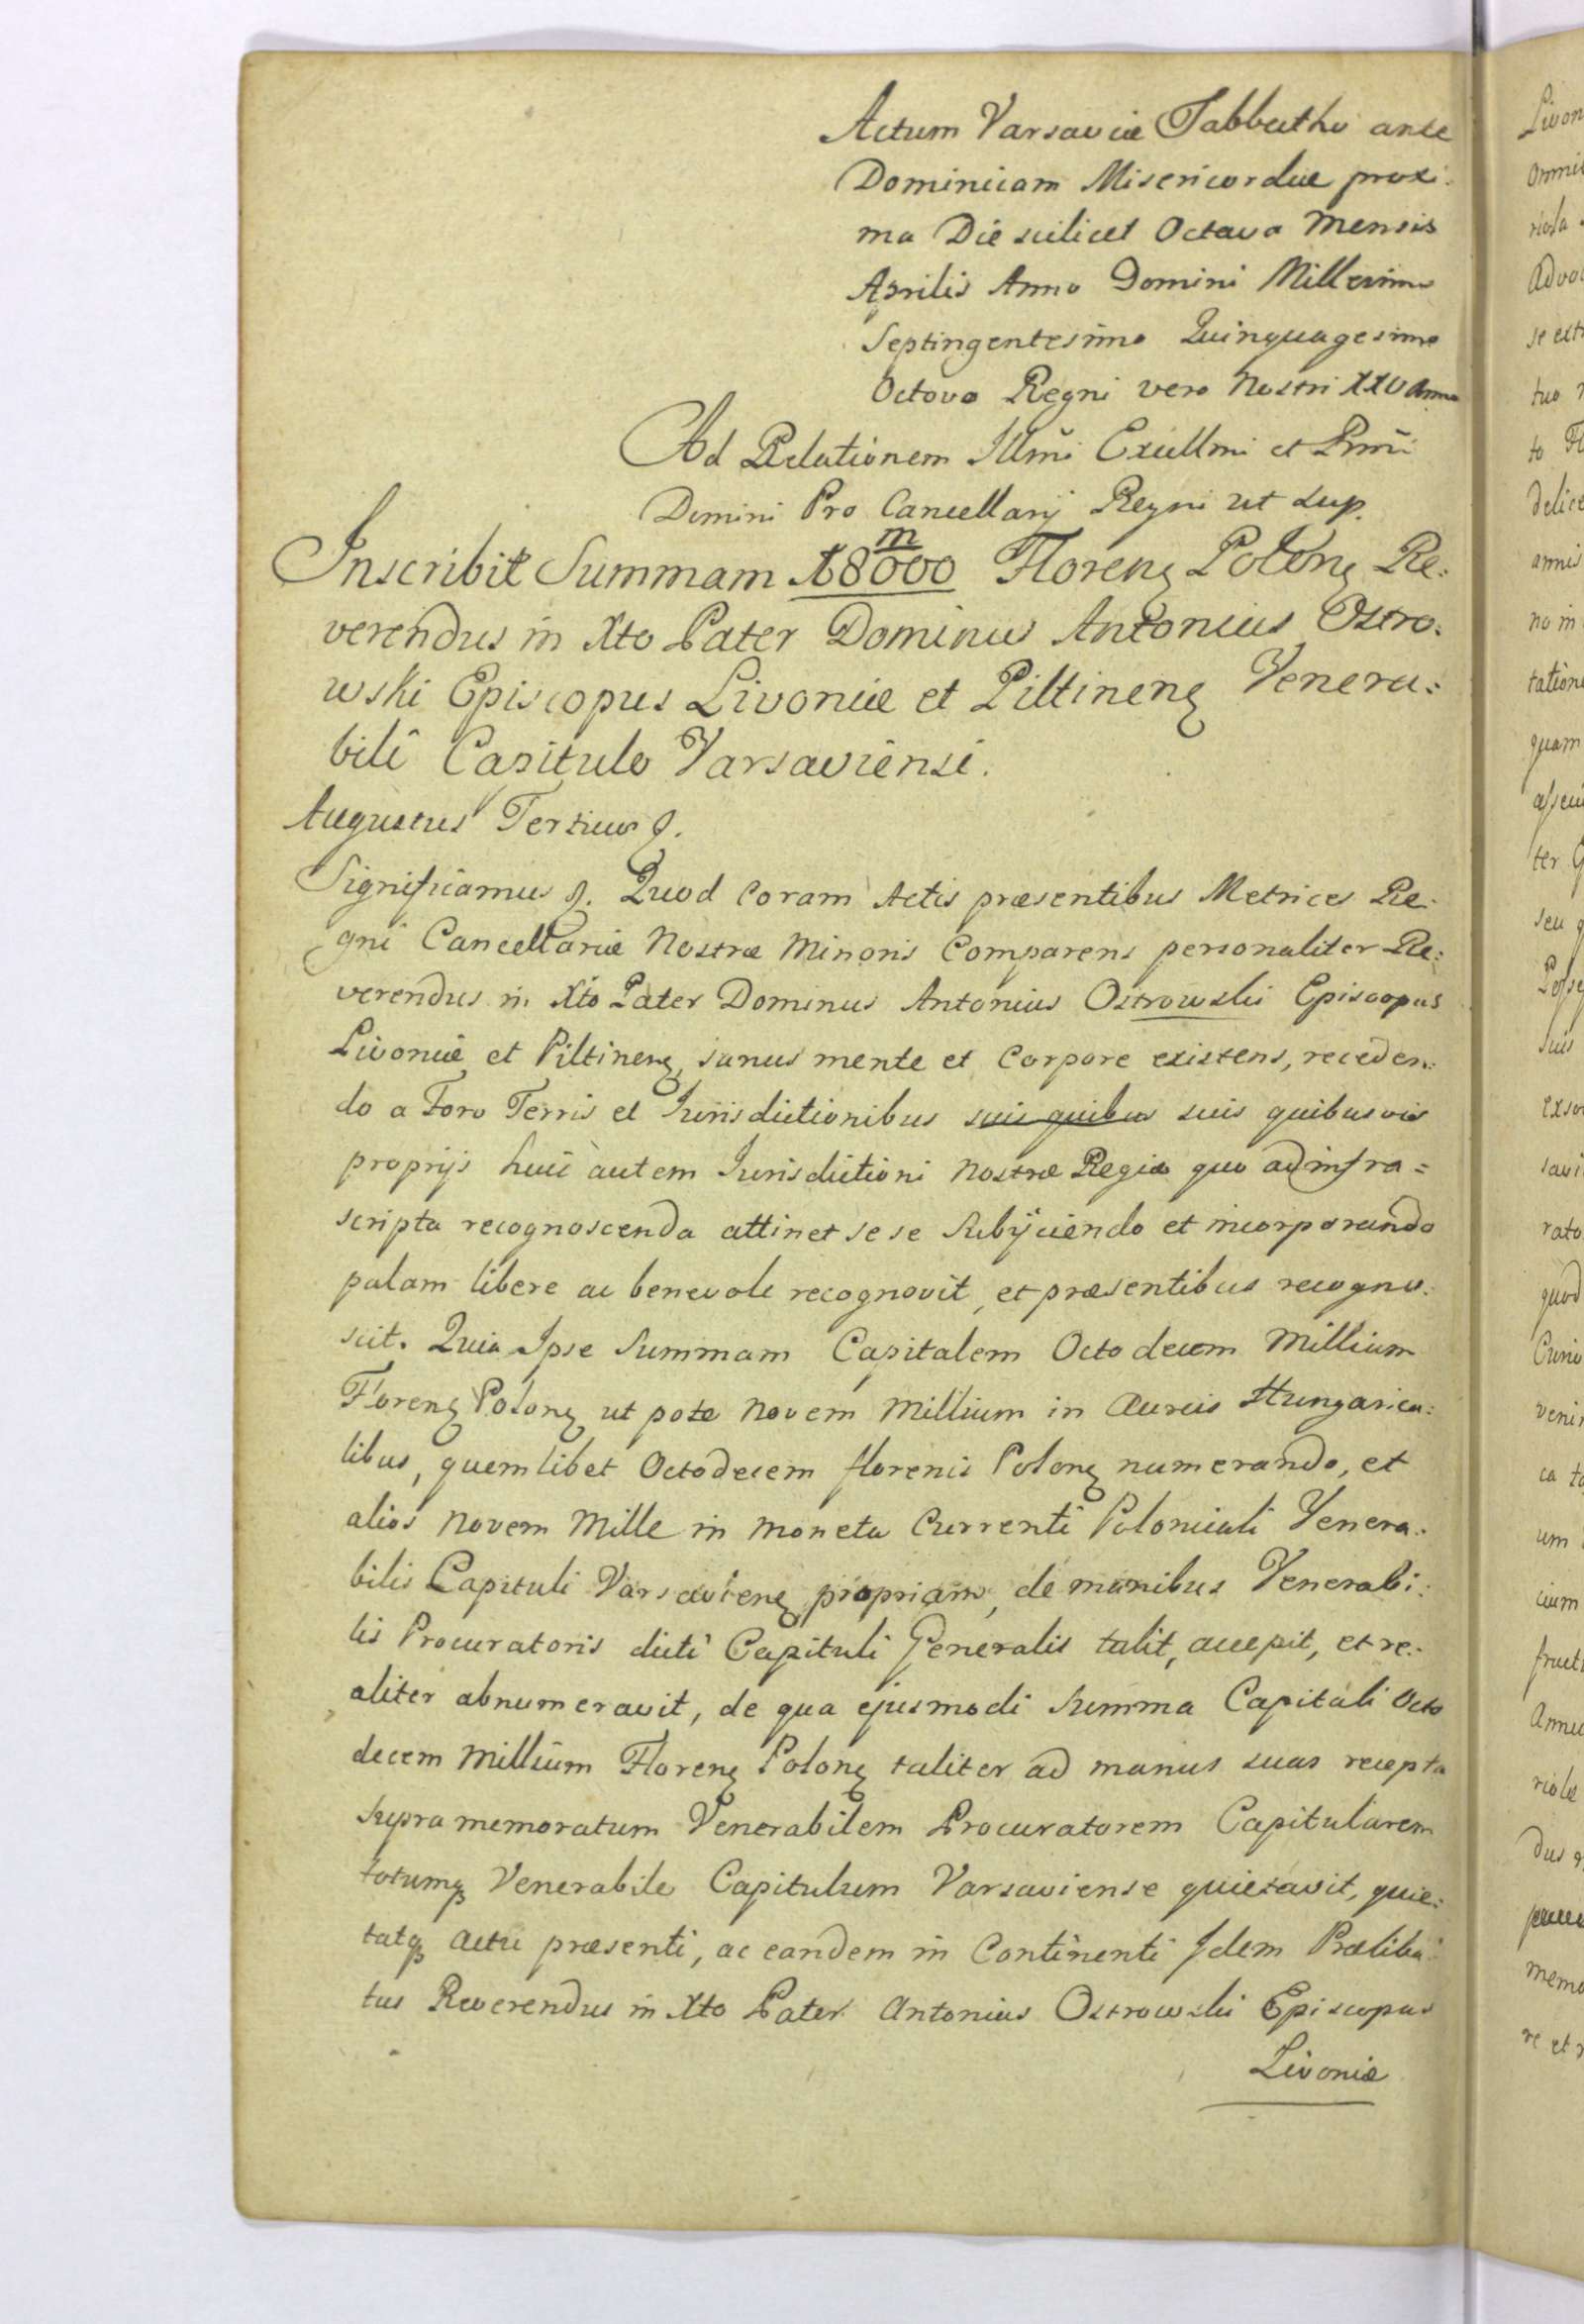 Actum Varsaviæ Sabbatho ante
Dominicam Misericordiæ proxi:
ma Die scilicet Octava Mensis
Aprilis Anno Domini Millesimo
Septingentesimo Quinquagesimo
Octavo Regni vero Nostri XXV Anno
Ad Relationem Illmi Excellmi et Rmi
Domini Pro Cancellarij Regni ut sup.
Inscribit Summam 18000 m Floren Polon Re:
verendus in Xto Pater Dominus Antonius Ostro:
wski Episcopus Livoniæ et Piltinen Venera:
bili Capitulo Varsaviensi.
Augustus Tertius
Significamus Quod Coram Actis præsentibus Metrices Re:
gni Cancellariæ Nostræ Minoris Comparens personaliter Re:
verendus in Xto Pater Dominus Antonius Ostrowski Episcopus
Livoniæ et Piltinen, sanus mente et Corpore existens, receden:
do a Foro Terris et Jurisdictionibus suis quibus suis quibusvis
proprijs huic autem Jurisdictioni Nostræ Regiæ quo ad infra=
scripta recognoscenda attinet se se subijciendo et incorporando
palam libere ac benevole recognovit, et præsentibus recogno:
scit. Quia Ipse Summam Capitalem Octodecem Millium
Floren Polon ut pote Novem Millium in Aureis Hungarica:
libus, quemlibet Octodecem florenis Polon numerando, et
alios Novem Mille in Moneta Currenti Poloniali Venera:
bilis Capituli Varsavien propriam, de manibus Venerabi:
lis Procuratoris dicti Capituli Generalis tulit, accepit, et re:
aliter abnumeravit, de qua ejusmodi Summa Capitali Octo
decem Millium Floren Polon taliter ad manus suas recepta
supra memoratum Venerabilem Procuratorem Capitularem
totumq Venerabile Capitulum Varsaviense quietavit, quie:
tatq actu præsenti, ac eandem in Continenti Idem Præliba:
tus Reverendus in Xto Pater Antonius Ostrowski Episcopus
Livoniæ